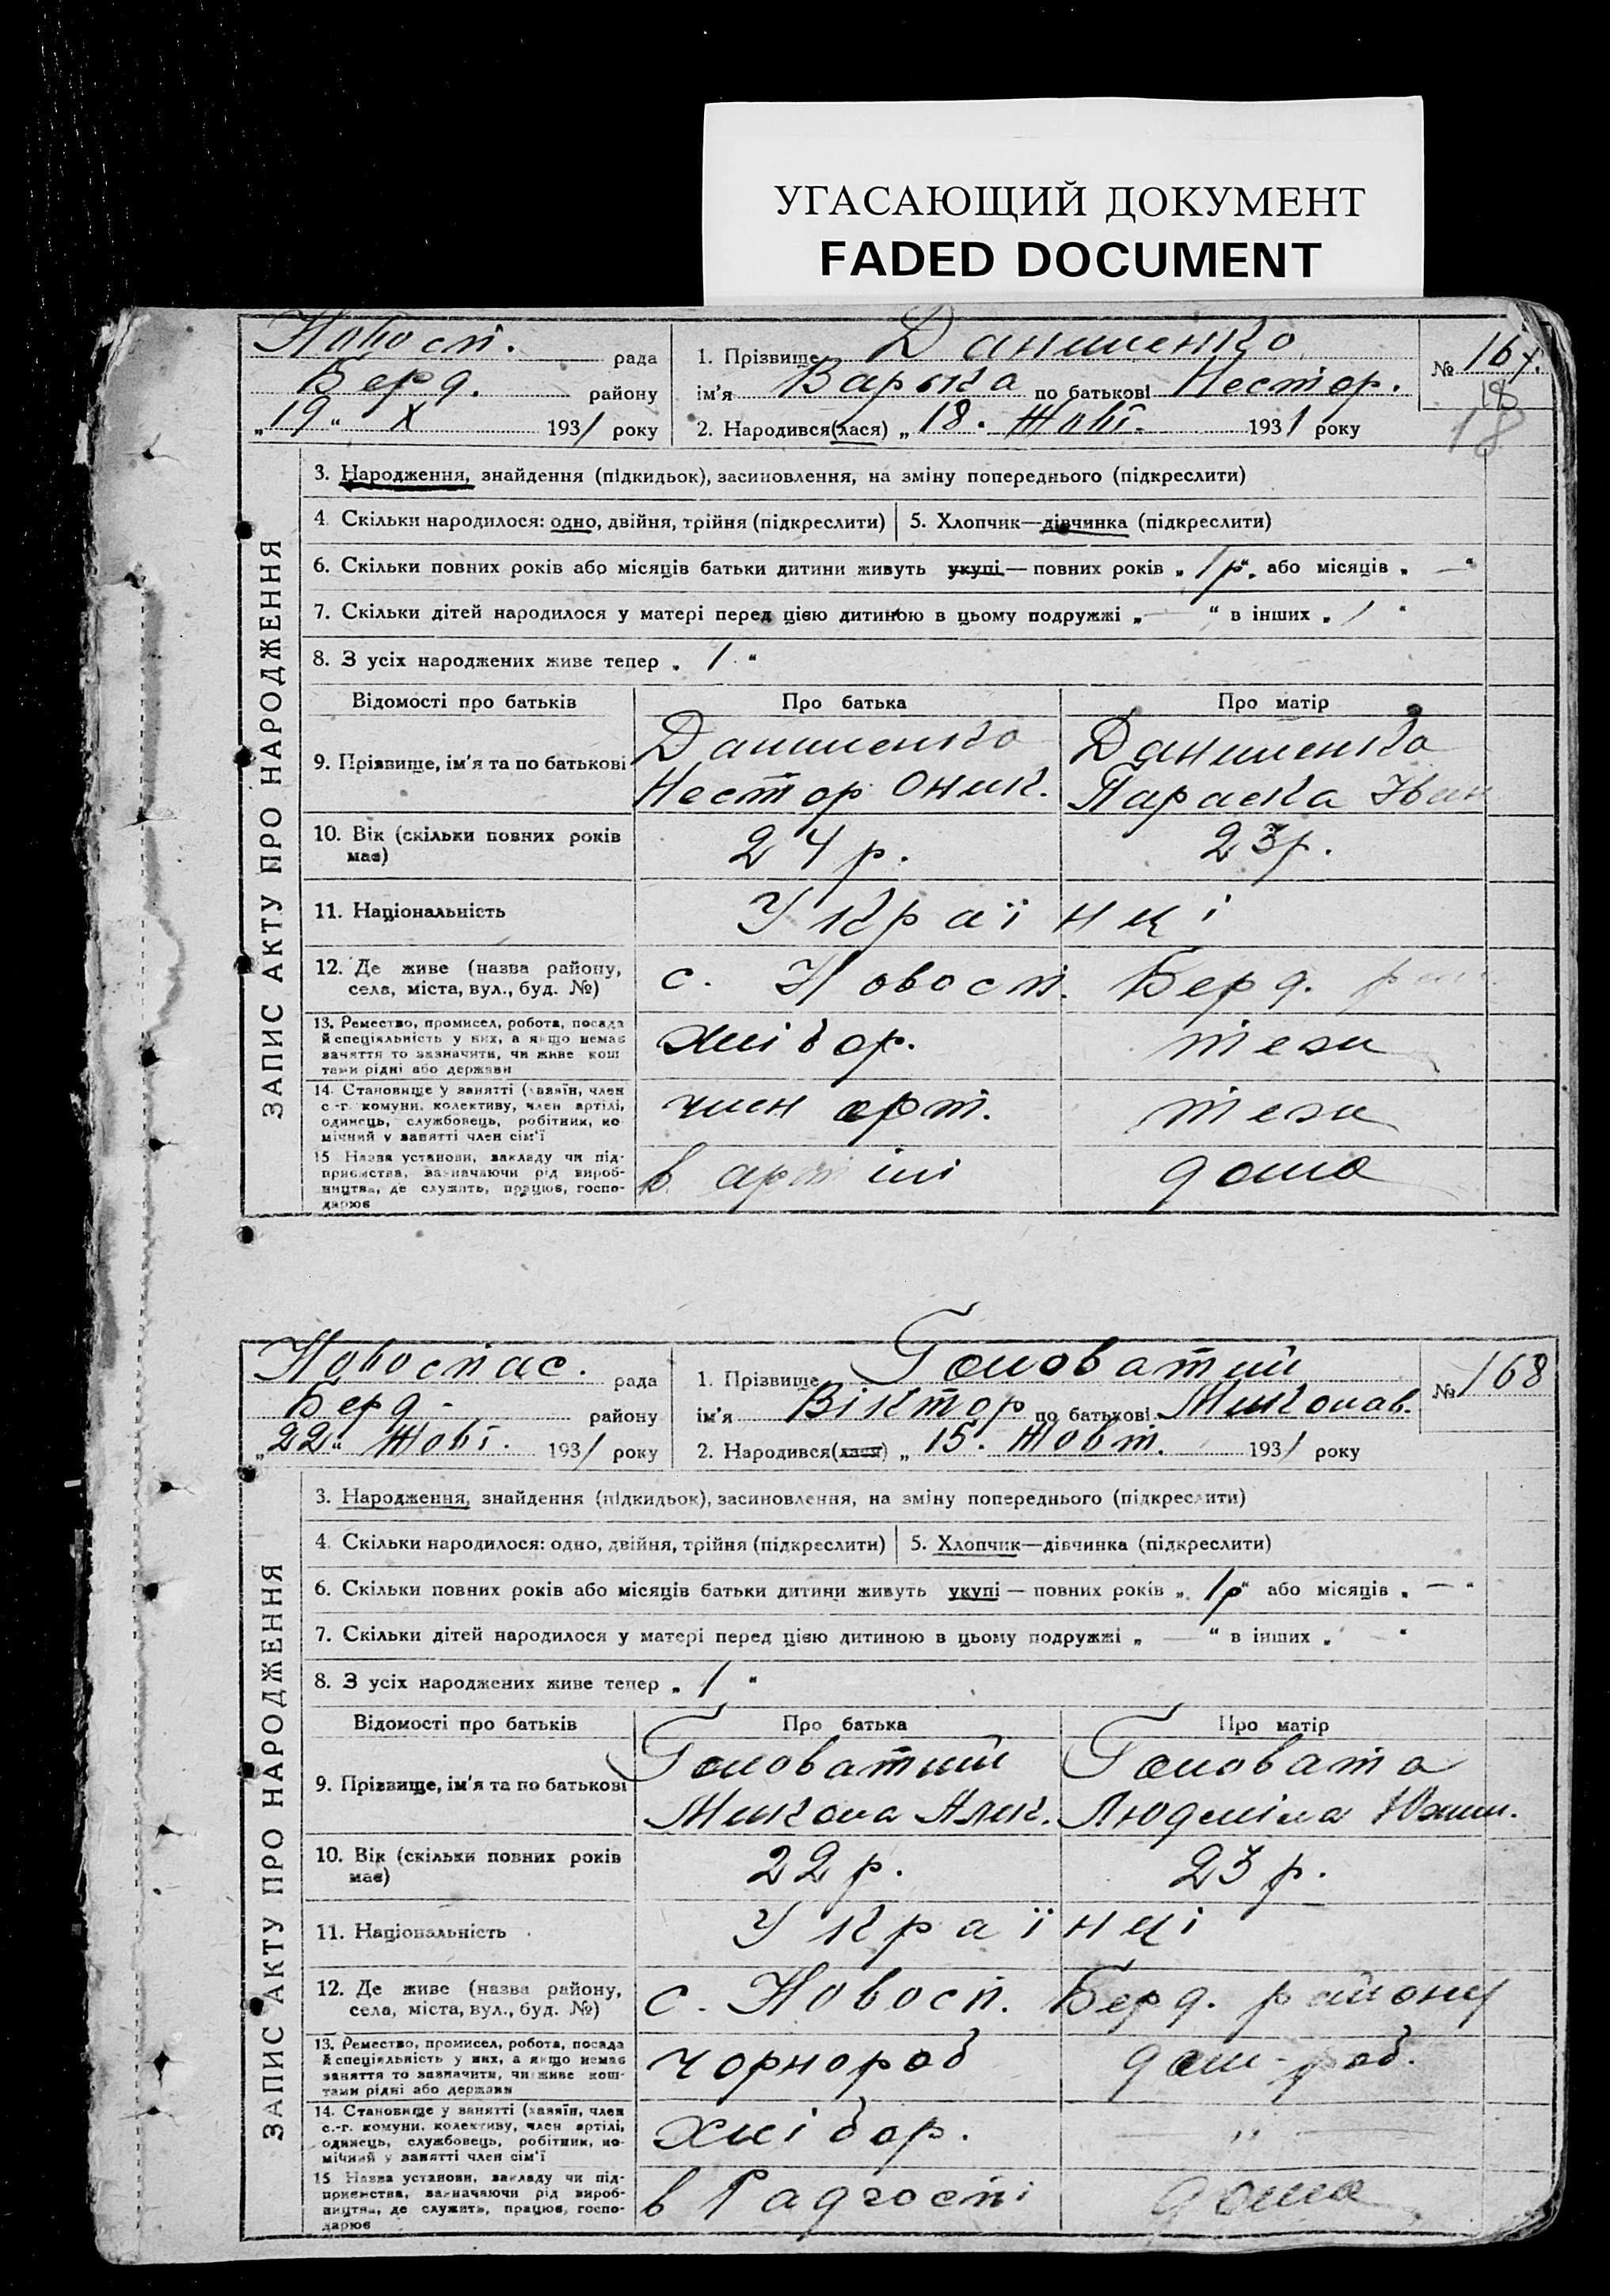 УГАСАЮЩИЙ ДОКУМЕНТ
FADED DOCUMENT
Новосп. рада
Берд. району
„19“ X 1931 року
1. Прізвище Данименко
ім'я Варька по батькові Нестор.
2. Народився(лася) „18. Жовт. 1931 року
№ 167.
18
18
ЗАПИС АКТУ ПРО НАРОДЖЕННЯ
3. Народження, знайдення (підкидьок), засиновлення, на зміну попереднього (підкреслити)
4. Скільки народилося: одно, двійня, трійня (підкреслити) 5. Хлопчик—дівчинка (підкреслити)
6. Скільки повних років або місяців батьки дитини живуть укупі — повних років „ 1р“. або місяців „ — “
7. Скільки дітей народилося у матері перед цією дитиною в цьому подружжі „ — “ в інших „ 1 “
8. З усіх народжених живе тепер „ 1 “
Відомості про батьків Про батька Про матір
9. Прізвище, ім'я та по батькові Данименко Нестор Оник. Данименко Параска Іван
10. Вік (скільки повних років має) 24 р. 23р.
11. Національність Українці
12. Де живе (назва району, села, міста, вул., буд. №) с. Новосп. Берд.
13. Ремество, промисел, робота, посада й спеціяльність у них, а якщо немає заняття то зазначити, чи живе коштами рідні або держави хлібор. теж
14. Становище у занятті (хазяїн, член с.-г. комуни, колективу, член артілі, одинець, службовець, робітник, помічний у занятті член сім'ї член арт. теж
15. Назва установи, закладу чи підприємства, зазначаючи рід виробництва, де служить, працює, господарює в артілі дома
Новоспас. рада
Берд. району
„22“ Жовт. 1931 року
1. Прізвище Головатий
ім'я Віктор по батькові Миколав.
2. Народився(лася) „15. Жовт. 1931 року
№ 168
ЗАПИС АКТУ ПРО НАРОДЖЕННЯ
3. Народження, знайдення (підкидьок), засиновлення, на зміну попереднього (підкреслити)
4. Скільки народилося: одно, двійня, трійня (підкреслити) 5. Хлопчик—дівчинка (підкреслити)
6. Скільки повних років або місяців батьки дитини живуть укупі — повних років „ 1р“ або місяців „ — “
7. Скільки дітей народилося у матері перед цією дитиною в цьому подружжі „ — “ в інших „ “
8. З усіх народжених живе тепер „ 1 “
Відомості про батьків Про батька Про матір
9. Прізвище, ім'я та по батькові Головатий Микола Алик. Головата Людміла
10. Вік (скільки повних років має) 22 р. 23 р.
11. Національність Українці
12. Де живе (назва району, села, міста, вул., буд. №) с. Новосп. Берд. району
13. Ремество, промисел, робота, посада й спеціяльність у них, а якщо немає заняття то зазначити, чи живе коштами рідні або держави чорнороб дом-роб.
14. Становище у занятті (хазяїн, член с.-г. комуни, колективу, член артілі, одинець, службовець, робітник, помічний у занятті член сім'ї хлібор. — „ —
15. Назва установи, закладу чи підприємства, зазначаючи рід виробництва, де служить, працює, господарює в Радгоспі дома